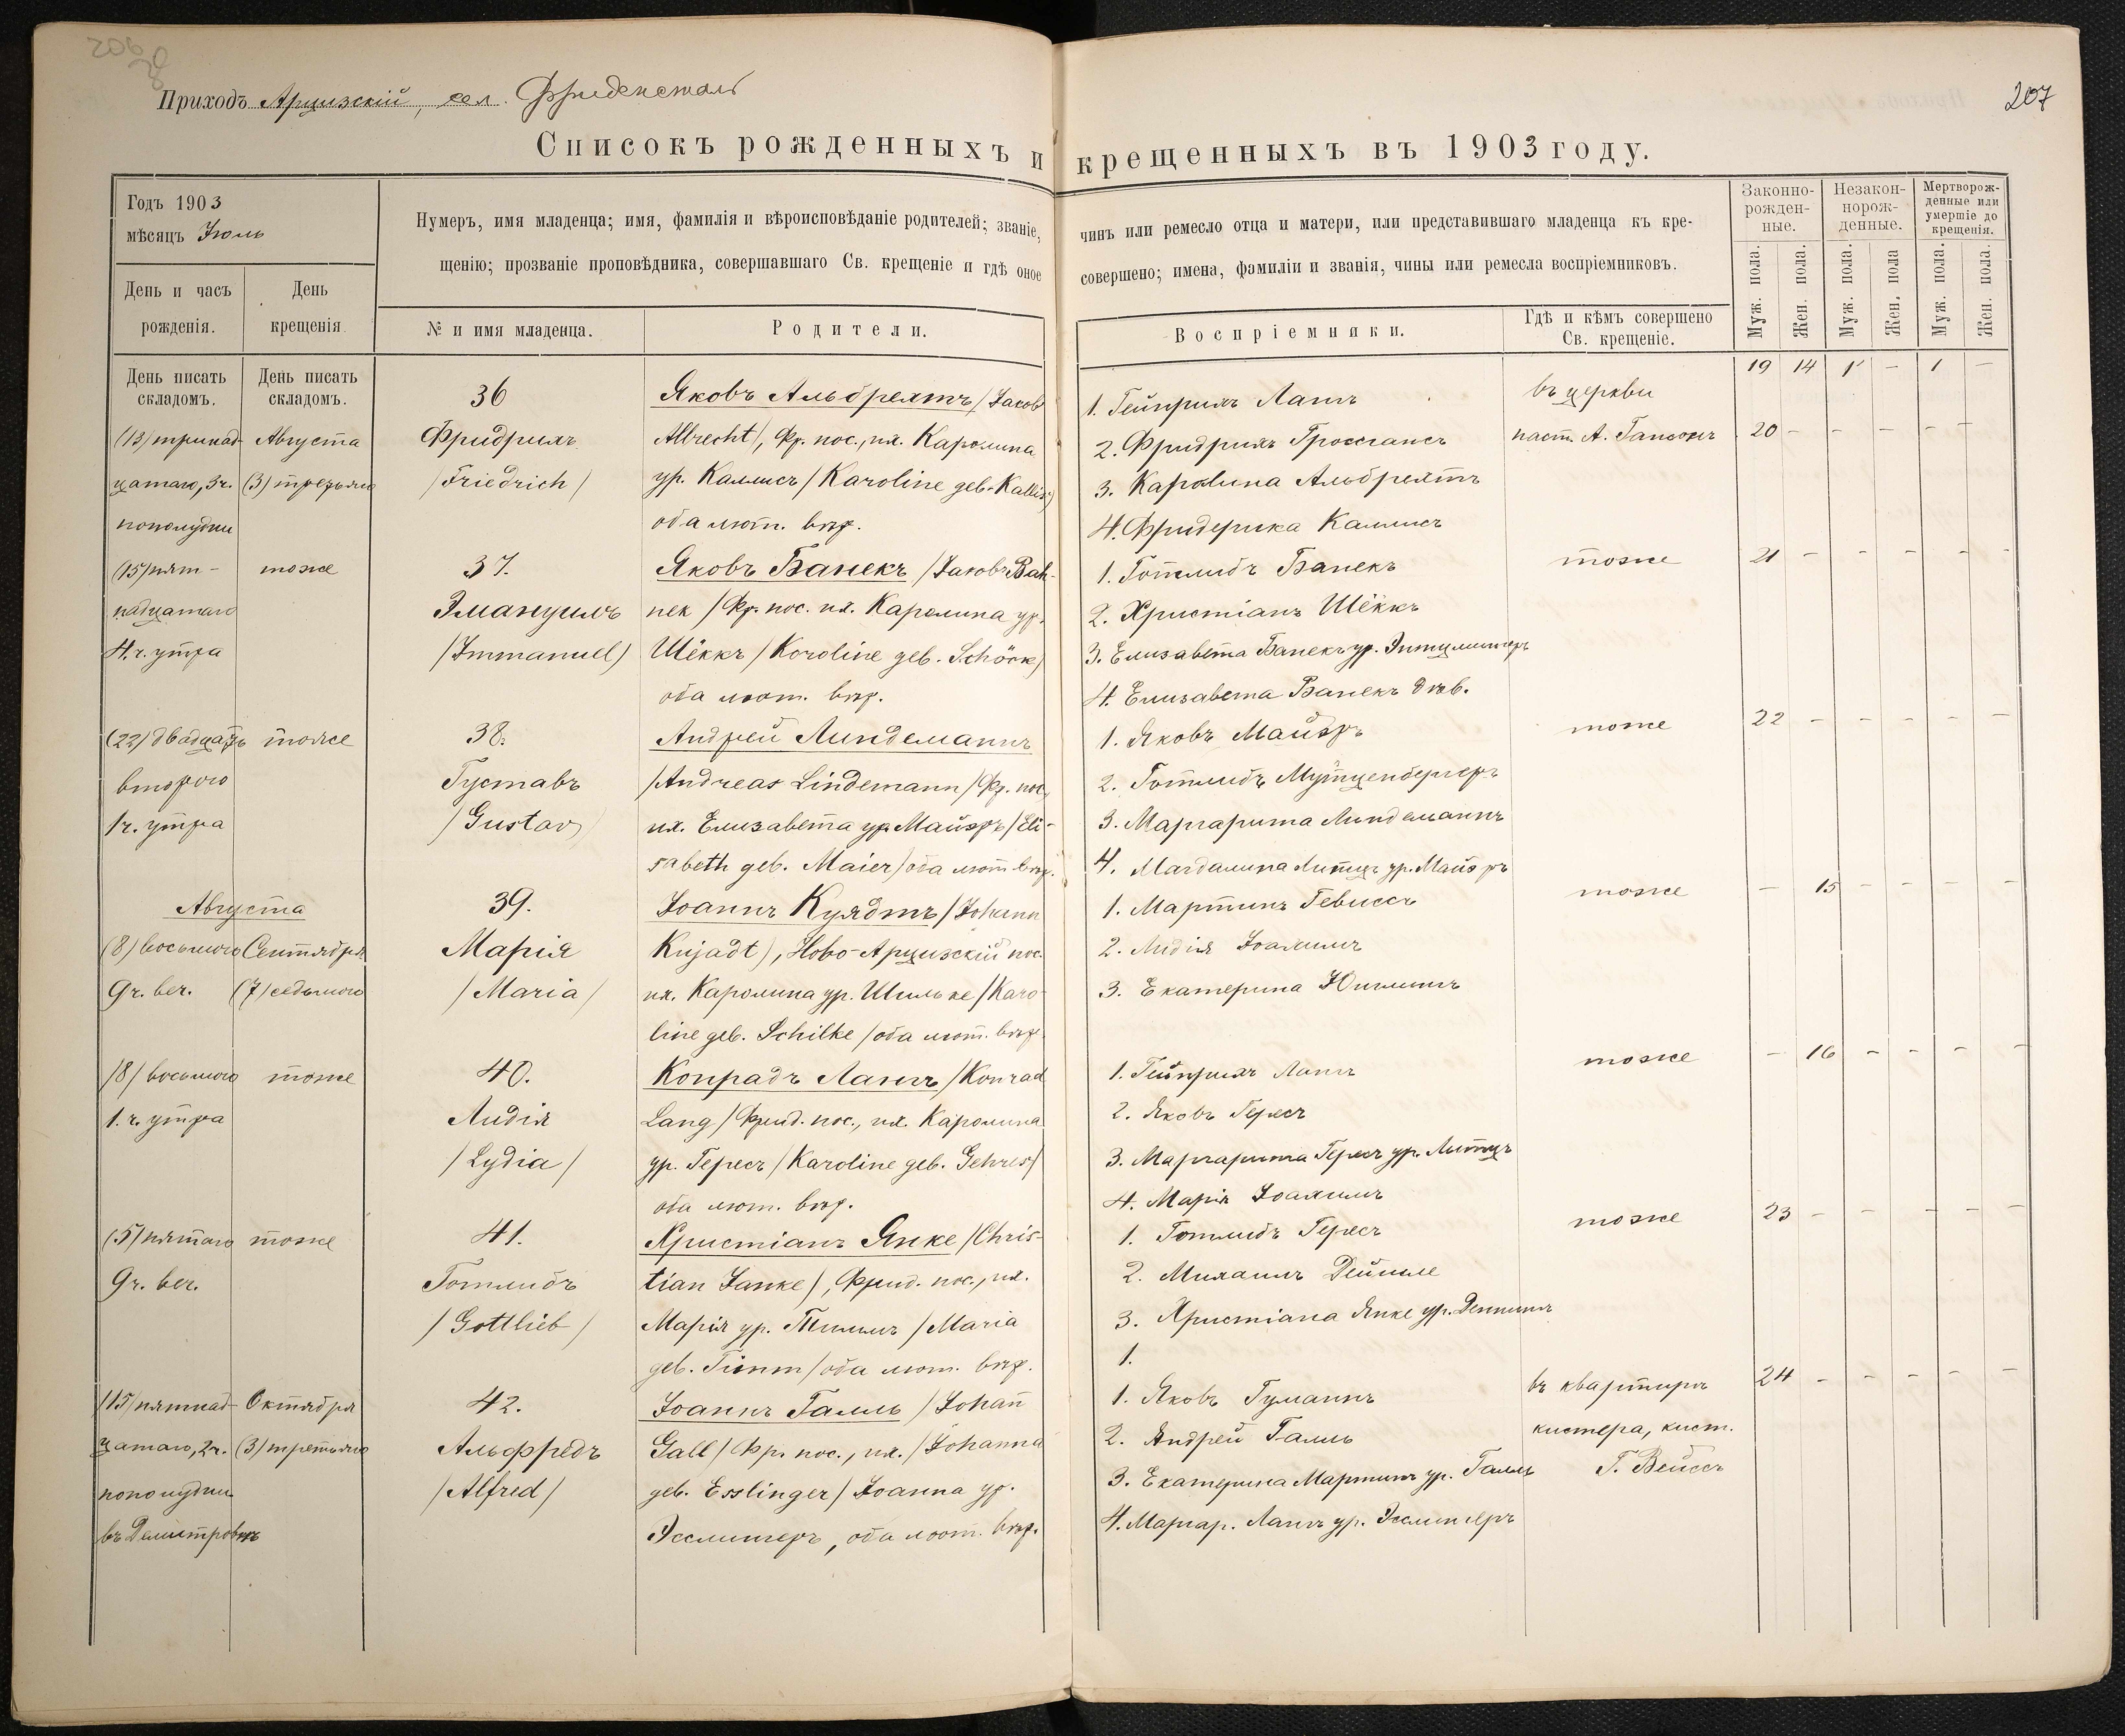 206
Приходъ Арцизскій, сел. Фриденсталь
207
Списокъ рожденныхъ и крещенныхъ въ 1903 году.
Годъ 1903
мѣсяцъ Іюль
День и часъ рожденія.
День крещенія.
Нумеръ, имя младенца; имя, фамилія и вѣроисповѣданіе родителей; званіе, чинъ или ремесло отца и матери, или представившаго младенца къ кре-
щенію; прозваніе проповѣдника, совершавшаго Св. крещеніе и гдѣ оное совершено; имена, фамиліи и званія, чины или ремесла воспріемниковъ.
№ и имя младенца.
Родители.
Воспріемники.
Гдѣ и кѣмъ совершено Св. крещеніе.
Законно-рожден-ные.
Незакон-норож-денные.
Мертворож-денные или умершіе до крещенія.
Муж. пола.
Жен. пола.
Муж. пола.
Жен. пола
Муж. пола.
Жен. пола.
День писать складомъ.
День писать складомъ.
19 14 1 – 1 –
36
Яковъ Альбрехтъ /Jacob
1. Гейнрихъ Лангъ
въ церкви
(13) тринад-
Августа
Фридрихъ
Albrecht/, Фр. пос., их. Каролина
2. Фридрихъ Гроссгансъ
паст. А. Гансонъ
20 – – – – –
цатаго, 3ч.
(3) третьяго
/Friedrich/
ур. Каллисъ /Karoline geb. Kallis/
3. Каролина Альбрехтъ
пополудни
оба лют. вѣр.
4. Фридерика Каллисъ
(15) пят-
тоже
37.
Яковъ Банекъ /Jacob Bah-
1. Готлибъ Банекъ
тоже
21 – – – – –
надцатаго
Эмануилъ
nek/ Фр. пос. их. Каролина ур.
2. Христіанъ Шёккъ
4.ч. утра
/Immanuel/
Шёккъ /Koroline geb. Schöck/
3. Елизавета Банекъ ур.
оба лют. вѣр.
4. Елизавета Банекъ дѣв.
(22) двадцать
тоже
38.
Андрей Линдеманнъ
1. Яковъ Майэръ
тоже
22 – – – – –
второго
Густавъ
/Andreas Lindemann/ Фр. пос.
2. Готлибъ Мутценбергеръ
1ч. утра
/Gustav/
их. Елизавета ур. Майэръ /Eli-
3. Маргарита Линдеманнъ
sabeth geb. Maier/ оба лют. вѣр.
4. Магдалина Литцъ ур. Майэръ
Августа
39.
Іоаннъ Куядтъ /Johann
1. Мартинъ Гевиссъ
тоже
– 15 – – – –
(8) восьмого
Сентября
Марія
Kujadt/, Ново-Арцизскій пос.
2. Лидія Іоахимъ
9ч. веч.
(7) седьмого
/Maria/
их. Каролина ур. Шильке /Karo-
3. Екатерина
line geb. Schilke/ оба лют. вѣр.
/8/ восьмого
тоже
40.
Конрадъ Лангъ /Konrad
1. Гейнрихъ Лангъ
тоже
– 16 – – – –
1. ч. утра
Лидія
Lang/ Фрид. пос., их. Каролина
2. Яковъ Гересъ
/Lydia/
ур. Гересъ /Karoline geb. Gehres/
3. Маргарита Гересъ ур. Литцъ
оба лют. вѣр.
4. Марія Іоахимъ
(5) пятаго
тоже
41.
Христіанъ Янке /Chris-
1. Готлибъ Гересъ
тоже
23 – – – – –
9ч. веч.
Готлибъ
tian Janke/, Фрид. пос., их.
2. Михаилъ
/Gottlieb/
Марія ур. Тиммъ /Maria
3. Христіана Янке ур.
geb. Timm/ оба лют. вѣр.
1.
/15/ пятнад-
Октября
42.
Іоаннъ Галль /Johan̄
1. Яковъ Гуманнъ
въ квартирѣ
24 – – – – –
цатаго, 2ч.
(3) третьяго
Альфредъ
Gall/ Фр. пос., их. /Johanna
2. Андрей Галль
кистера, кист.
пополудни
/Alfred/
geb. Esslinger/ Іоанна ур.
3. Екатерина Мартинъ ур. Галль
Г. Вейссъ
въ Демитровкѣ
Эсслингеръ, оба лют. вѣр.
4. Маргар. Лангъ ур. Эсслингеръ